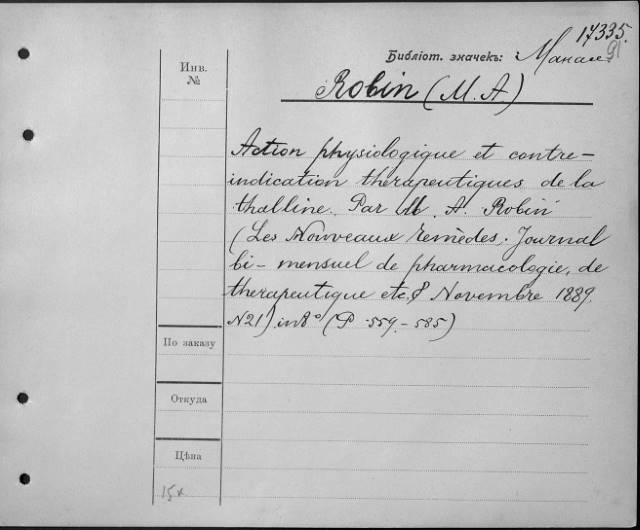 17335.
91
Библіот. значекъ:
Инв.
№
Robin (M. A)
Action physiologique et contre-
indication therapeutiques de la
thalline. Par M A. Robin
(Les Nouveaux remèdes. Journal
bi-mensuel de pharmacologie, de
therapeutique etc. 8 Novembre 1889.
N21) in 8° (P. 559.-585)
По заказу
Откуда
Цѣна
15х